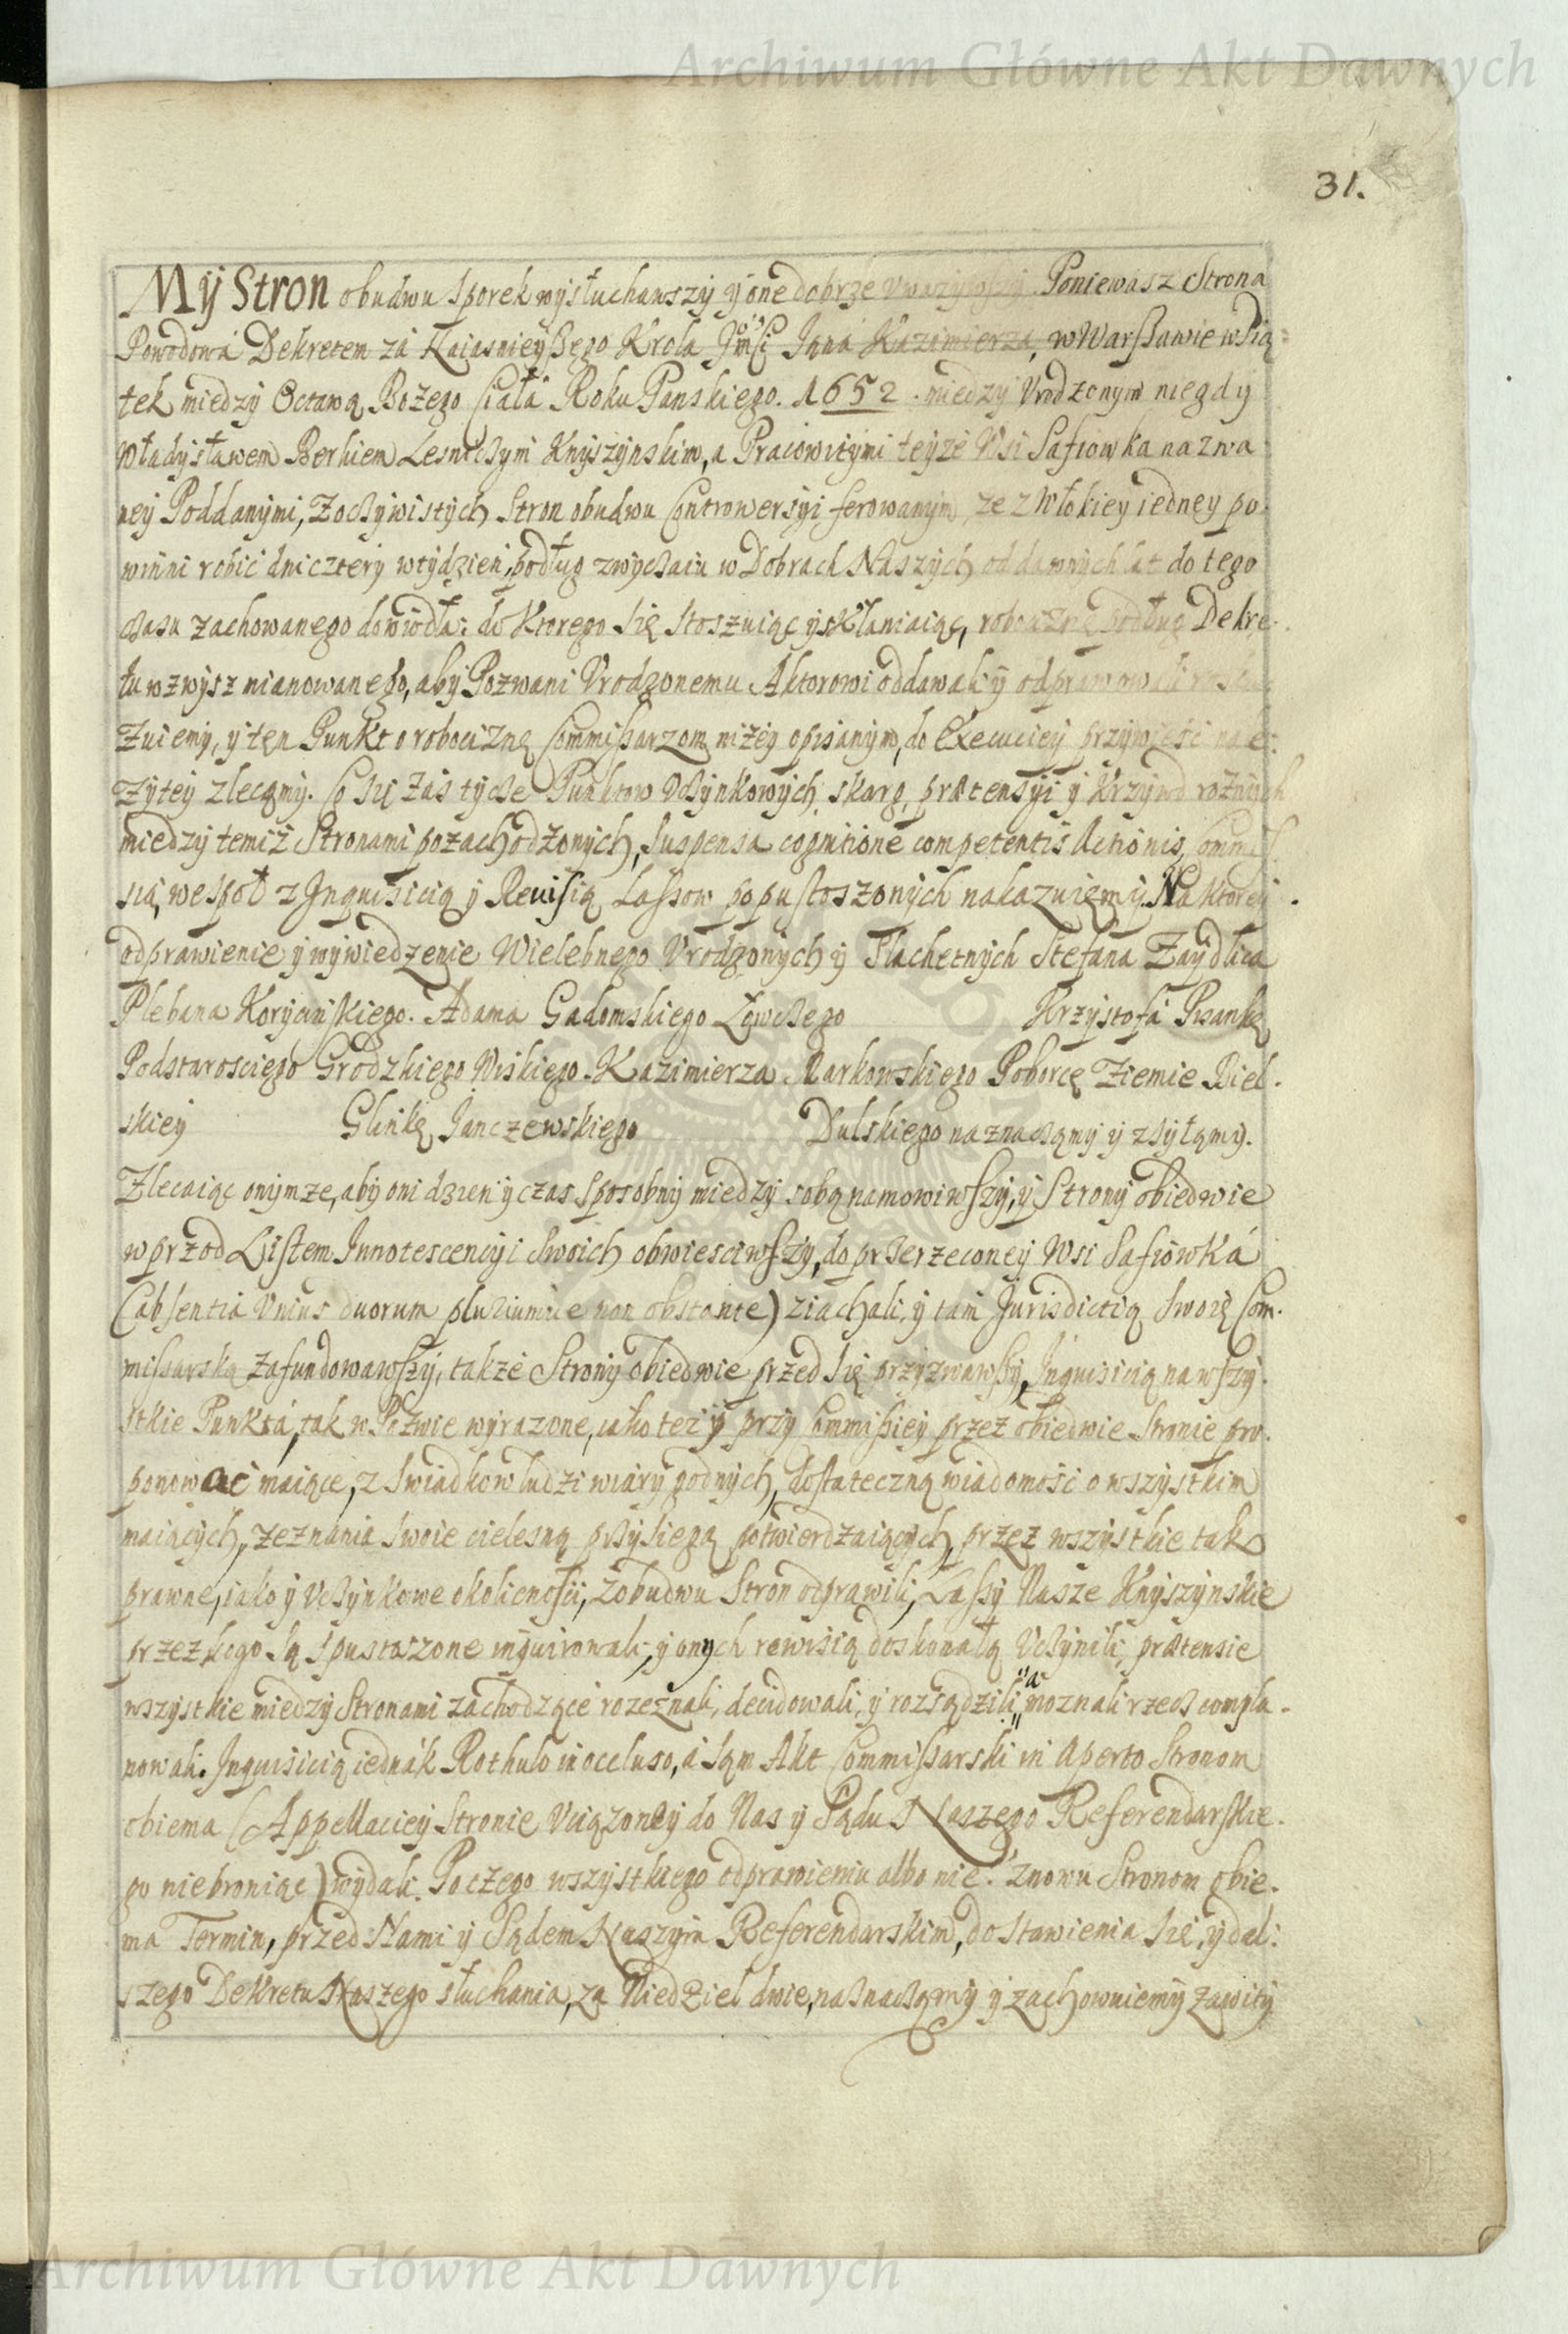 Archiwum Główne Akt Dawnych
31.
My Stron obudwu sporek wysłuchawszy y one dobrze vwazywszy. Poniewasz Strona
Powodowa Dekretem za Naiasnieyszego Krola Jmści Jana Kazimierza, w Warszawie w Pią=
tek miedzy Octawą Bozego Ciała Roku Panskiego. 1652. miedzy Vrodzonym niegdy
Władysławem Berkiem Lesniczym Knyszynskim, a Pracowitymi teyze Wsi Safiowka nazwa
ney Poddanymi, z oczywistych Stron obudwu Controwersyi ferowanym, ze z Włokiey iedney po
winni robić dni cztery w tydzien, podług zwyczaiu w Dobrach Naszych od dawnych lat do tego
czasu zachowanego dowiodła: do Ktorego się stoszuiąc y skłaniaiąc, robociznę podług Dekre-
tu wzwysz mianowanego, aby Pozwani Vrodzonemu Aktorowi oddawali y odprawowali
zuiemy, y ten Punkt o robociznę Commissarzom nizey opisanym, do Execuciey przywieść nale:
zytey zlecamy. Co się zas tycze Punktow Vczynkowych, skarg, prætensyi y Krzywd roznych
miedzy temiz Stronami pozachodzonych, suspensa cognitione competentis Actionis, Commis
sią, wespoł z Inquisicią y Revisią Lassow popustoszonych nakazuięmy. Na ktorey
odprawienie y wywiedzenie Wielebnego Vrodzonych y Slachetnych Stefana Zaydlica
Plebana Korycinskiego. Adama Gadomskiego Łowczego Krzystofa Pisankę
Podstarosciego Grodzkiego Wiskiego. Kazimierza Markowskiego Poborcę Ziemie Biel-
skiey Glinkę Janczewskiego Dulskiego naznaczamy y zsyłamy.
Zlecaiąc onymze, aby oni dzien y czas sposobny miedzy sobą namowiwszy, y Strony obiedwie
wprzod Listem Innotescencyi swoich obwiesciwszy, do przerzeconey Wsi Safiowka
(absentia Vnius duorum pluriumve non obstante) ziachali, y tam Jurisdictią swoię Com-
missarską zafundowawszy, takze Strony obiedwie przed się przyzwawszy, Inquisicią na wszy-
stkie Punkta, tak w Pozwie wyrazone, iako tez y przy Commissiey przez obiedwie stronie pro-
ponować maiące, z swiadkow ludzi wiary godnych, dostateczną wiadomość o wszystkim
maiących, zeznania swoie cielesną przysiegą potwierdzaiących, przez wszystkie tak
prawne, iako y Vczynkowe okolicnosci, z obudwu Stron odprawili, Lassy Nasze Knyszynskie
przez kogo są spustoszone inquirowali, y onych rewisią doskonałą Vczynili, prætensie
wszystkie miedzy Stronami zachodzące rozeznali, decidowali, y rozsądzili, "a" moznali rzecz compla-
nowali. Inquisicią iednak Rothulo in occluso, a sąm Akt Commissarski in aperto Stronom
obiema (Appellaciey Stronie Vciązoney do Nas y Sądu Naszego Referendarskie-
go niebroniąc) wydali. Po czego wszystkiego odprawieniu albo nie: znowu Stronom obie-
ma Termin, przed Nami y Sądem Naszym Referendarskim, do stawienia się, y dal:
szego Dekretu Naszego słuchania, za Niedziel dwie, naznaczamy y zachowuiemy zawity
Archiwum Główne Akt Dawnych